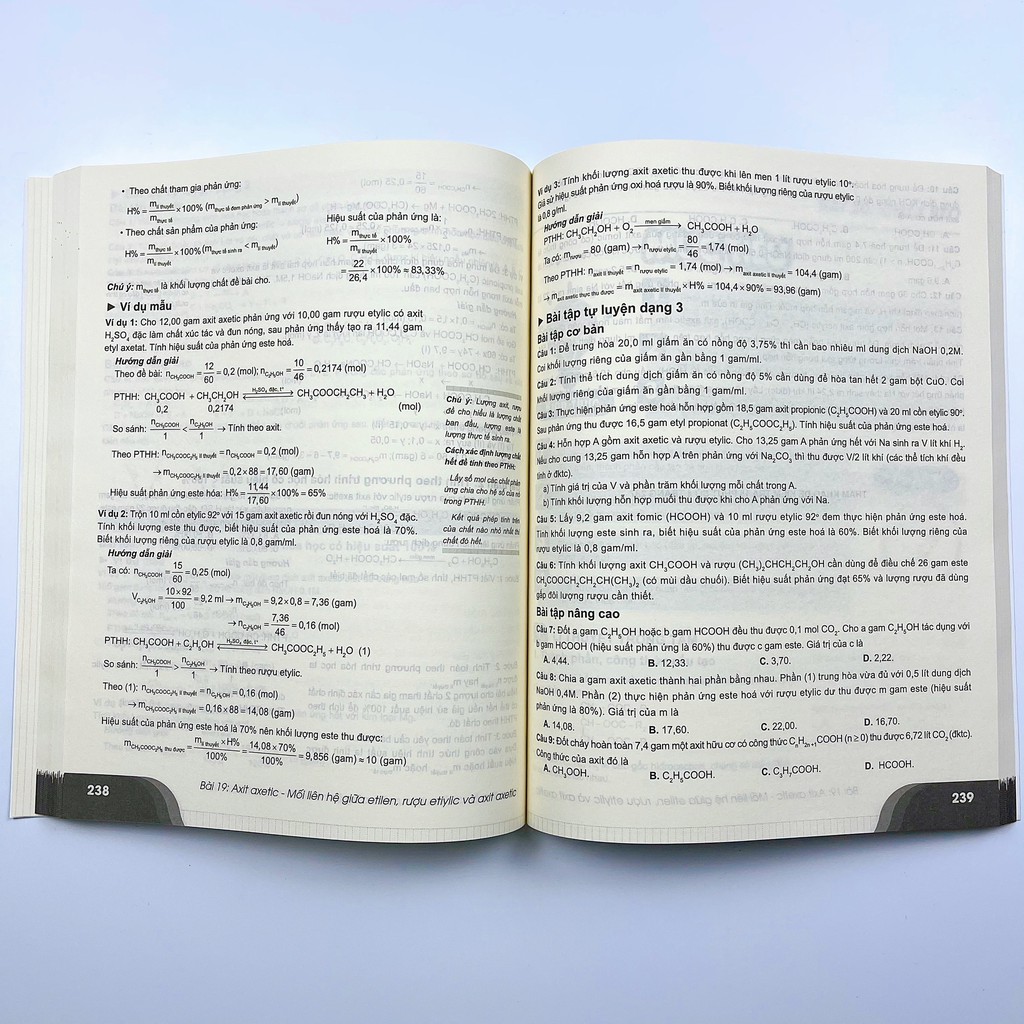 • Theo chất tham gia phản ứng:
H% = m lí thuyết / m thực tế × 100% (m thực tế đem phản ứng > m lí thuyết)
• Theo chất sản phẩm của phản ứng:
H% = m thực tế / m lí thuyết × 100% (m thực tế sinh ra < m lí thuyết)
Chú ý: m thực tế là khối lượng chất đề bài cho.
Hiệu suất của phản ứng là:
H% = m thực tế / m lí thuyết × 100%
= 22/26,4 × 100% ≈ 83,33%
► Ví dụ mẫu
Ví dụ 1: Cho 12,00 gam axit axetic phản ứng với 10,00 gam rượu etylic có axit
H₂SO₄ đặc làm chất xúc tác và đun nóng, sau phản ứng thấy tạo ra 11,44 gam
etyl axetat. Tính hiệu suất của phản ứng este hoá.
Hướng dẫn giải
Theo đề bài: nCH₃COOH = 12/60 = 0,2 (mol); nC₂H₅OH = 10/46 = 0,2174 (mol)
PTHH: CH₃COOH + CH₃CH₂OH ⇌ (H₂SO₄ đặc, t°) CH₃COOCH₂CH₃ + H₂O
0,2 0,2174 (mol)
So sánh: nCH₃COOH/1 < nC₂H₅OH/1 → Tính theo axit.
Theo PTHH: nCH₃COOC₂H₅ lí thuyết = nCH₃COOH = 0,2 (mol)
→ mCH₃COOC₂H₅ lí thuyết = 0,2 × 88 = 17,60 (gam)
Hiệu suất phản ứng este hóa: H% = 11,44/17,60 × 100% = 65%
Ví dụ 2: Trộn 10 ml cồn etylic 92° với 15 gam axit axetic rồi đun nóng với H₂SO₄ đặc.
Tính khối lượng este thu được, biết hiệu suất của phản ứng este hoá là 70%.
Biết khối lượng riêng của rượu etylic là 0,8 gam/ml.
Hướng dẫn giải
Ta có: nCH₃COOH = 15/60 = 0,25 (mol)
VC₂H₅OH = 10×92/100 = 9,2 ml → mC₂H₅OH = 9,2 × 0,8 = 7,36 (gam)
→ nC₂H₅OH = 7,36/46 = 0,16 (mol)
PTHH: CH₃COOH + C₂H₅OH ⇌ (H₂SO₄ đặc, t°) CH₃COOC₂H₅ + H₂O (1)
So sánh: nCH₃COOH/1 > nC₂H₅OH/1 → Tính theo rượu etylic.
Theo (1): nCH₃COOC₂H₅ lí thuyết = nC₂H₅OH = 0,16 (mol)
→ mCH₃COOC₂H₅ lí thuyết = 0,16 × 88 = 14,08 (gam)
Hiệu suất phản ứng este hoá là 70% nên khối lượng este thu được:
mCH₃COOC₂H₅ thu được = m lí thuyết × H% / 100% = 14,08 × 70% / 100% = 9,856 (gam) ≈ 10 (gam)
Chú ý: Lượng axit, rượu
đề cho hiểu là lượng chất
ban đầu, lượng este là
lượng thực tế sinh ra.
Cách xác định lượng chất
hết để tính theo PTHH:
Lấy số mol các chất phản
ứng chia cho hệ số của nó
trong PTHH.
Kết quả phép tính trên
của chất nào nhỏ nhất thì
chất đó hết.
238
Bài 19: Axit axetic - Mối liên hệ giữa etilen, rượu etiylic và axit axetic
Ví dụ 3: Tính khối lượng axit axetic thu được khi lên men 1 lít rượu etylic 10°.
Giả sử hiệu suất phản ứng oxi hoá rượu là 90%. Biết khối lượng riêng của rượu etylic
là 0,8 g/ml.
Hướng dẫn giải
PTHH: CH₃CH₂OH + O₂ → (men giấm) CH₃COOH + H₂O
Ta có: m rượu = 80 (gam) → n rượu etylic = 80/46 = 1,74 (mol)
Theo PTHH: n axit lí thuyết = n rượu etylic = 1,74 (mol) → m axit axetic lí thuyết = 104,4 (gam)
→ m axit axetic thực thu được = m axit axetic lí thuyết × H% = 104,4 × 90% = 93,96 (gam)
► Bài tập tự luyện dạng 3
Bài tập cơ bản
Câu 1: Để trung hòa 20,0 ml giấm ăn có nồng độ 3,75% thì cần bao nhiêu ml dung dịch NaOH 0,2M.
Coi khối lượng riêng của giấm ăn gần bằng 1 gam/ml.
Câu 2: Tính thể tích dung dịch giấm ăn có nồng độ 5% cần dùng để hòa tan hết 2 gam bột CuO. Coi
khối lượng riêng của giấm ăn gần bằng 1 gam/ml.
Câu 3: Thực hiện phản ứng este hoá hỗn hợp gồm 18,5 gam axit propionic (C₂H₅COOH) và 20 ml cồn etylic 90°.
Sau phản ứng thu được 16,5 gam etyl propionat (C₂H₅COOC₂H₅). Tính hiệu suất của phản ứng este hoá.
Câu 4: Hỗn hợp A gồm axit axetic và rượu etylic. Cho 13,25 gam A phản ứng hết với Na sinh ra V lít khí H₂.
Nếu cho cung 13,25 gam hỗn hợp A trên phản ứng với Na₂CO₃ thì thu được V/2 lít khí (các thể tích khí đều
tính ở đktc).
a) Tính giá trị của V và phần trăm khối lượng mỗi chất trong A.
b) Tính khối lượng hỗn hợp muối thu được khi cho A phản ứng với Na.
Câu 5: Lấy 9,2 gam axit fomic (HCOOH) và 10 ml rượu etylic 92° đem thực hiện phản ứng este hoá.
Tính khối lượng este sinh ra, biết hiệu suất của phản ứng este hoá là 60%. Biết khối lượng riêng của
rượu etylic là 0,8 gam/ml.
Câu 6: Tính khối lượng axit CH₃COOH và rượu (CH₃)₂CHCH₂CH₂OH cần dùng để điều chế 26 gam este
CH₃COOCH₂CH₂CH(CH₃)₂ (có mùi dầu chuối). Biết hiệu suất phản ứng đạt 65% và lượng rượu đã dùng
gấp đôi lượng rượu cần thiết.
Bài tập nâng cao
Câu 7: Đốt a gam C₂H₅OH hoặc b gam HCOOH đều thu được 0,1 mol CO₂. Cho a gam C₂H₅OH tác dụng với
b gam HCOOH (hiệu suất phản ứng là 60%) thu được c gam este. Giá trị của c là
A. 4,44. B. 12,33. C. 3,70. D. 2,22.
Câu 8: Chia a gam axit axetic thành hai phần bằng nhau. Phần (1) trung hòa vừa đủ với 0,5 lít dung dịch
NaOH 0,4M. Phần (2) thực hiện phản ứng este hoá với rượu etylic dư thu được m gam este (hiệu suất
phản ứng là 80%). Giá trị của m là
A. 14,08. B. 17,60. C. 22,00. D. 16,70.
Câu 9: Đốt cháy hoàn toàn 7,4 gam một axit hữu cơ có công thức CₙH₂ₙ₊₁COOH (n ≥ 0) thu được 6,72 lít CO₂ (đktc).
Công thức của axit đó là
A. CH₃OOH. B. C₂H₅COOH. C. C₃H₇COOH. D. HCOOH.
239